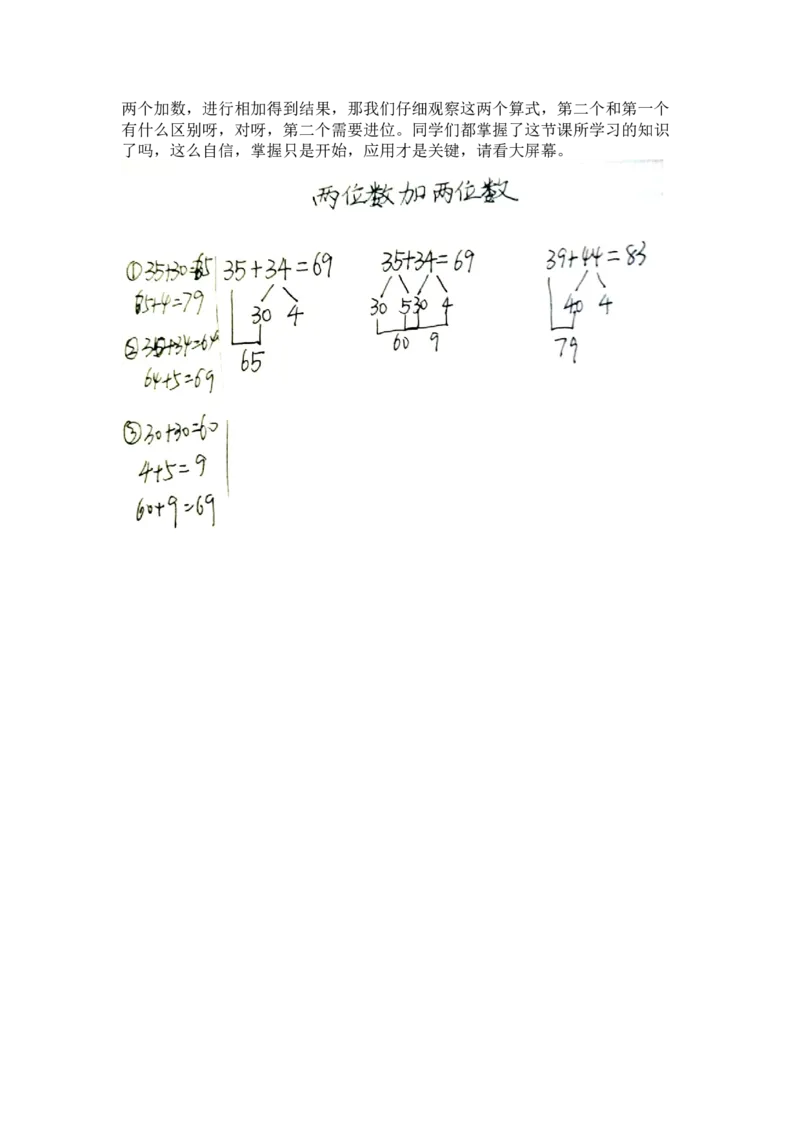 两个加数，进行相加得到结果，那我们仔细观察这两个算式，第二个和第一个
有什么区别呀，对呀，第二个需要进位。同学们都掌握了这节课所学习的知识
了吗，这么自信，掌握只是开始，应用才是关键，请看大屏幕。
两位数加两位数
①35+30=65
65+4=79
②35+34=64
64+5=69
③30+30=60
4+5=9
60+9=69
35+34=69
30 4
65
35+34=69
30 5 30 4
60 9
39+44=83
40 4
79